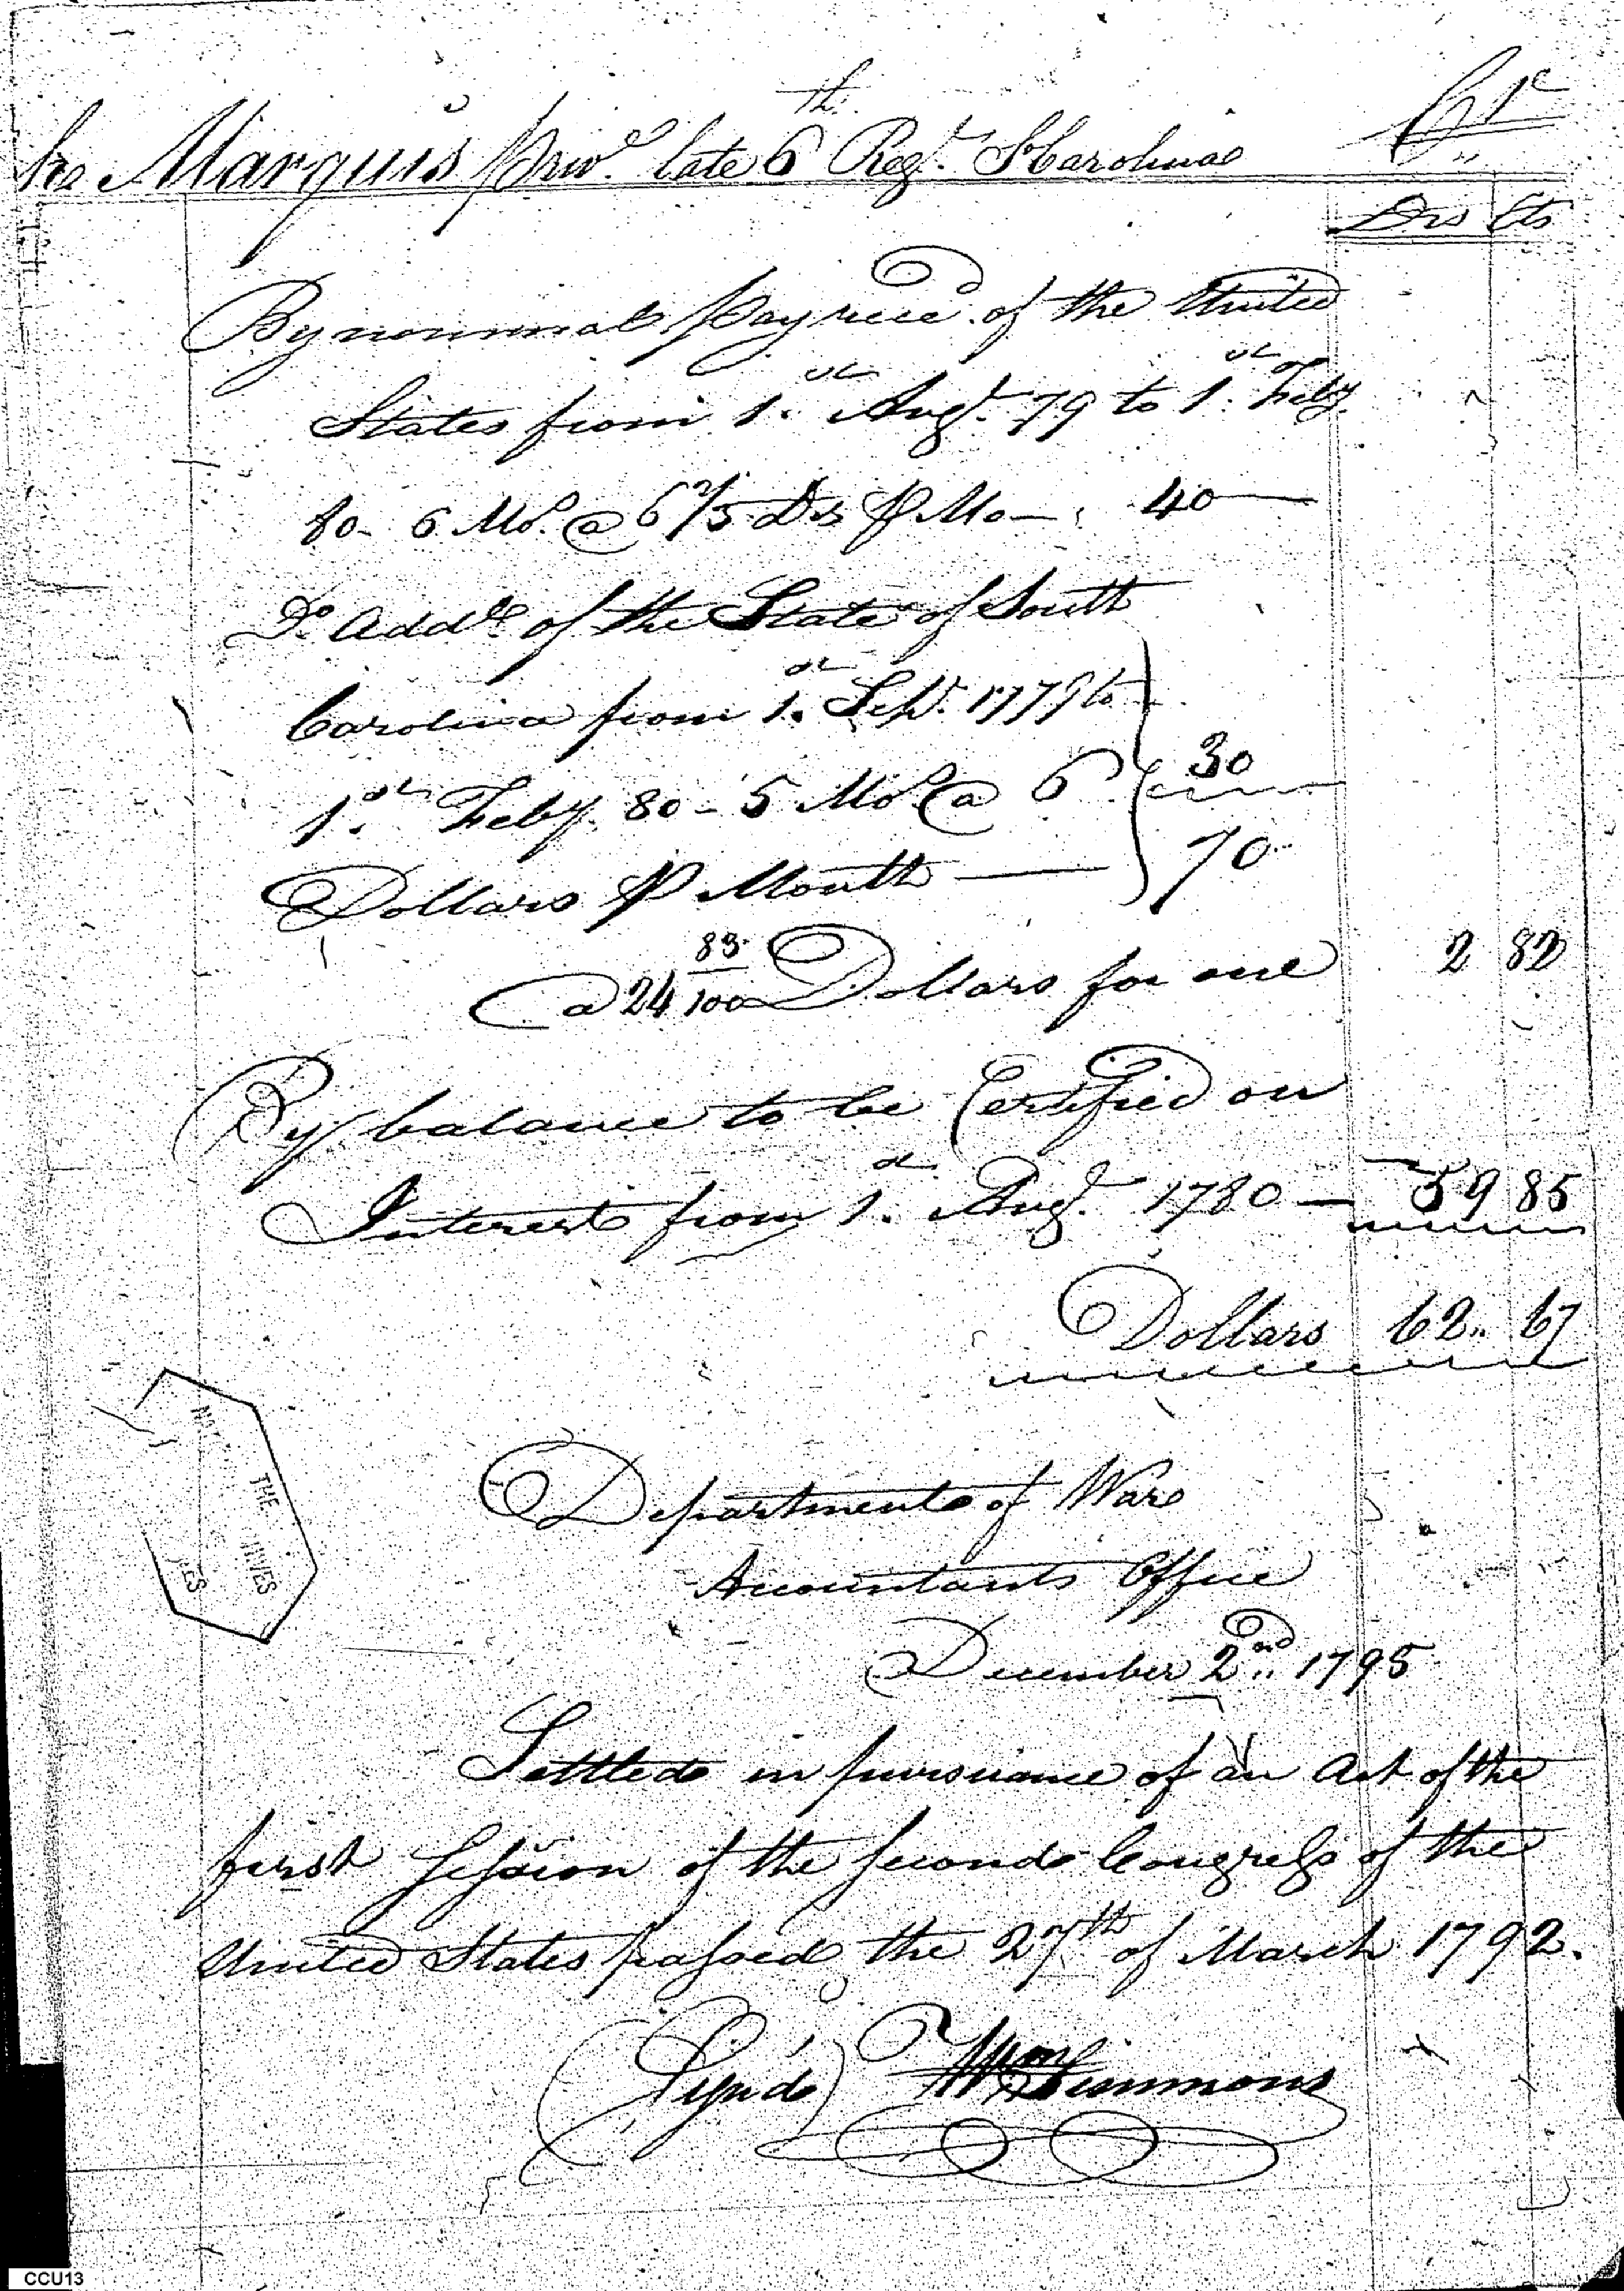 Marquis Priv.e late 6th Reg.t S Carolina Cr
Drs Cts
By nominal pay rece.d of the United
States from 1.st Aug.t 79 to 1.st Feby.
80 - 6 Mo.s @ 6 2/3 Ds P Mo - 40
D.o Add.l of the State of South
Carolina from 1.st Sept. 1779 to
1.st Feby. 80 - 5 Mo.s @ 6 30
Dollars P Month 70
@ 24 83/100 Dollars for one 2 82
By balance to be Certified on
Interest from 1.st Aug.t 1780 - 59 85
Dollars 62.. 67
Department of War
Accountants Office
December 2nd 1795
Settled in pursuance of an Act of the
first Session of the second Congress of the
United States passed the 27th of March 1792.
(Sign'd) Wm Simmons
THE
CCU13